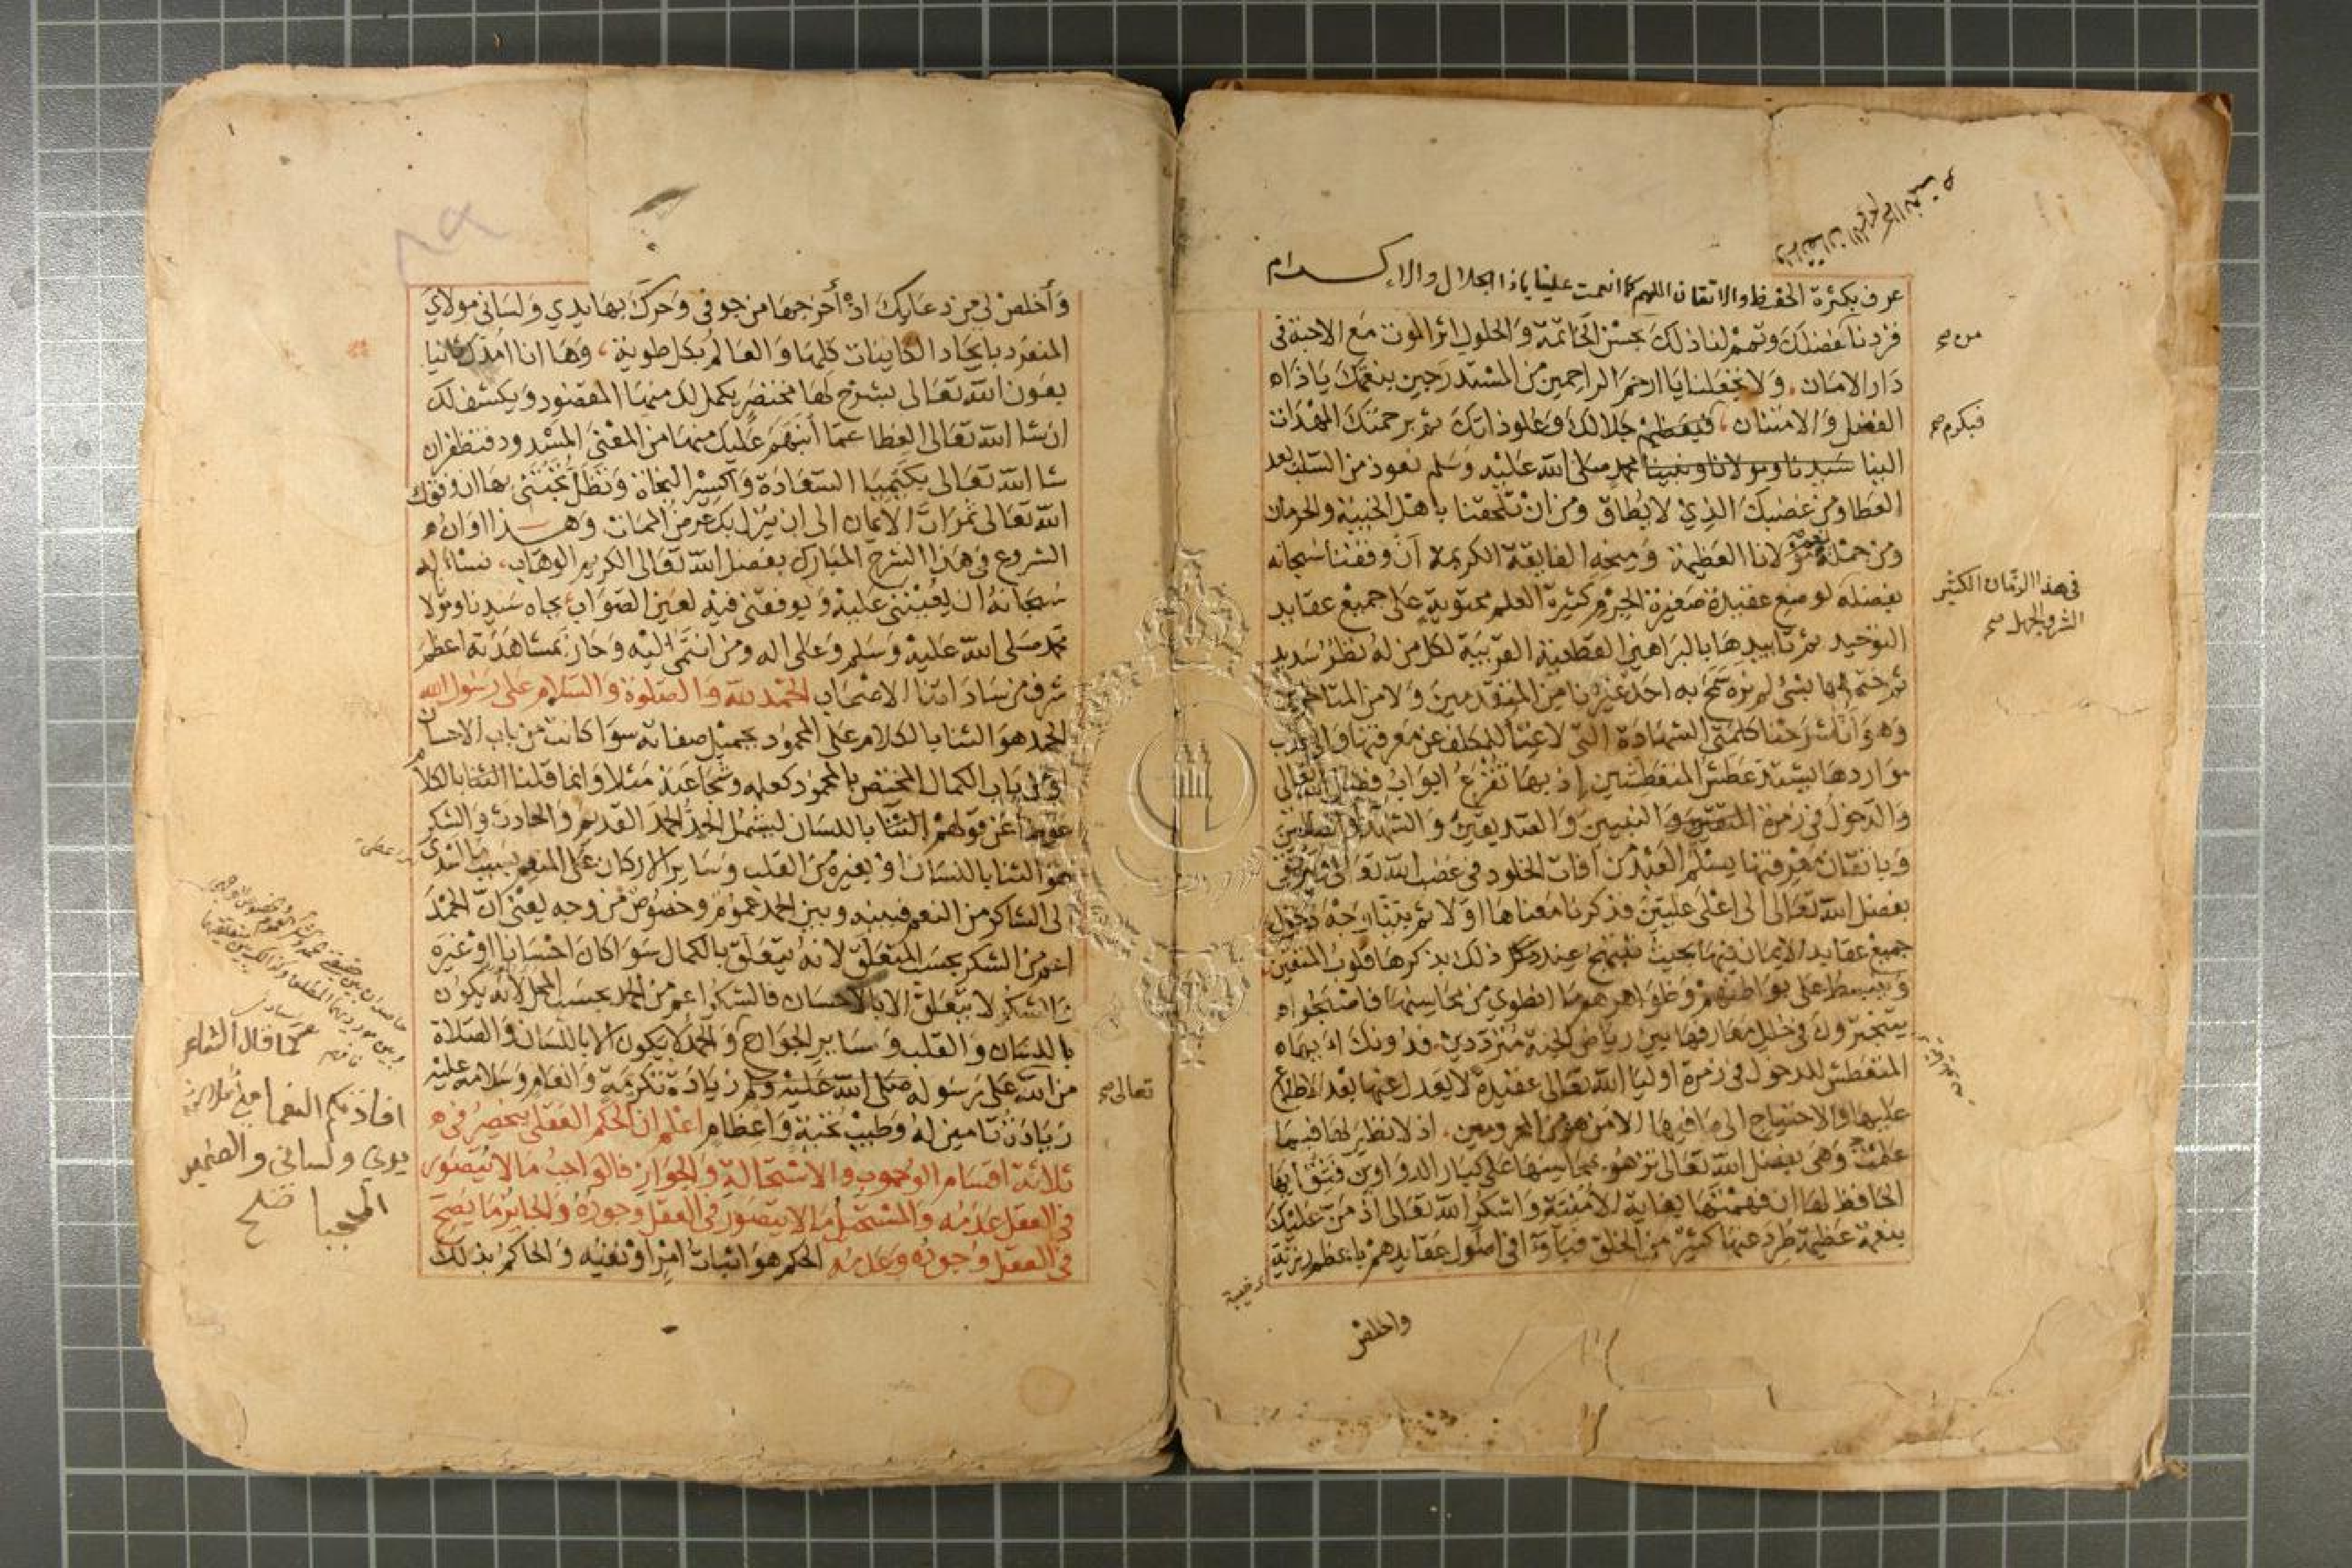 عرف بكثرة الحفظ والاتقان اللهم كما انعمت علينا ياذا الجلال والاكرام
فزدنا من فضلك وتمم لنا ذلك بحسن الخاتمة والحلول اثر الموت مع الاحبة في
دار الامان، ولا تجعلنا يا ارحم الراحمين من المستدرجين بنعمك يا ذا
الفضل والامتنان، فبعظيم جلالك وعلو ذاتك ثم برحمتك المهداة
الينا سيدنا ومولانا ونبينا محمد صلى الله عليه وسلم نعوذ من السلب بعد
العطا ومن غضبك الذي لا يطاق ومن ان تلحقنا باهل الخيبة والحرمان
ومن جملة نعم مولانا العظيمة ومنحه الفايقة الكريمة ان وفقنا سبحانه
بفضله لوضع عقيدة صغيرة الجرم كثيرة العلم محتوية على جميع عقايد
التوحيد ثم تاييدها بالبراهين القطعية القريبة لكل من له نظر سديد
ثم ختمناها بشئ لم نره سمح به احد غيرنا من المتقدمين ولا من المتاخرين
وهو انا شرحنا كلمتي الشهادة التي لا غنا للمكلف عن معرفتها والى عذب
مواردها يشتد عطش المتعطشين اذ بها تقرع ابواب فضل الله تعالى
والدخول في زمرة المتقين والنبيين والصديقين والشهدا والصالحين
وباتقان معرفتها يسلم العبد من افات الخلود في غضب الله تعالى ويرتقي
بفضل الله تعالى الى اعلى عليين فذكرنا معناها اولا ثم بينا وجه دخول
جميع عقايد الايمان فيها بحيث تبتهج عند ذلك بذكرها قلوب المتقين
وينبسط على بواطنهم وظواهرهم ما انطوي من محاسنها فاصبحوا
يتبخترون في حلل معارفها بين رياض الجنة مترددين، فدونك ايها
المتعطش للدخول في زمرة اوليا الله تعالى عقيدة لا يعدل عنها بعد الاطلاع
عليها والاحتياج الى ما فيها الا من هو من المحرومين، اذ لا نظير لها فيما
علمت وهي بفضل الله تعالى تزهو بمحاسنها على كبار الدواوين فثق ايها
الحافظ لها ان فهمتها بغاية الامنية واشكر الله تعالى اذ من عليك
بنعمة عظيمة طرد عنها كثير من الخلق فباوا في اصول عقايدهم باعظم رزية
واخلص
من صح
فبكرم صح
في هذا الزمان الكثير
الشر والجهل صح
وأخلص لي من دعايك اذ أخرجها من جوفي وحرك بها يدي ولساني مولاي
المنفرد بايجاد الكاينات كلها والعالم بكل طوية، وها انا امدك ثانيا
بعون الله تعالى بشرح لها مختصر يكمل لك منها المقصود ويكشف لك
ان شا الله تعالى الغطا عما أبهم عليك منها من المعنى المسدود فتظفر ان
شا الله تعالى بكيميا السعادة واكسير النجاة وتظل تجتني بها ان وفقك
الله تعالى ثمرات الايمان الى ان ينزل بك عرض الممات وهذا اوان
الشروع في هذا الشرح المبارك بفضل الله تعالى الكريم الوهاب، نساله
سبحانه ان يعينني عليه ويوفقني فيه لعين الصواب بجاه سيدنا ومولا
محمد صلى الله عليه وسلم وعلى اله ومن انتمى اليه وحاز بمشاهدته اعظم
شرف من ساداتنا الاصحاب الحمد لله والصلوة والسلام على رسول الله
الحمد هو الثنا بالكلام على المحمود بجميل صفاته سوا كانت من باب الاحسان
او من باب الكمال المختص بالمحمود كعلمه وشجاعته مثلا وانما قلنا الثنا بالكلام
عوضا عن قولهم الثنا باللسان ليشمل الحد الحمد القديم والحادث والشكر
هو الثنا باللسان او بغيره من القلب وساير الاركان على المنعم بسبب ما اسدى
الى الشاكر من النعم فبينه وبين الحمد عموم وخصوص من وجه يعني ان الحمد
اعم من الشكر بحسب المتعلق لانه يتعلق بالكمال سوا كان احسانا او غيره
والشكر لا يتعلق الا بالاحسان فالشكر اعم من الحمد بحسب المحل لانه يكون
باللسان والقلب وساير الجوارح والحمد لا يكون الا باللسان والصلاة
من الله على رسوله صلى الله عليه وسلم زيادة تكرمة وانعام وسلامه عليه
زيادة تامين له وطيب تحية واعظام اعلم ان الحكم العقلي ينحصر في
ثلاثة اقسام الوجوب والاستحالة والجواز فالواجب ما لا يتصور
في العقل عدمه والمستحيل ما لا يتصور في العقل وجوده والجايز ما يصح
في العقل وجوده وعدمه الحكم هو اثبات امر او نفيه والحاكم بذلك
تعالى صح
كما قال الشاعر
افادتكم النعما مني ثلاثة
يدي ولساني والضمير
المحجبا صح